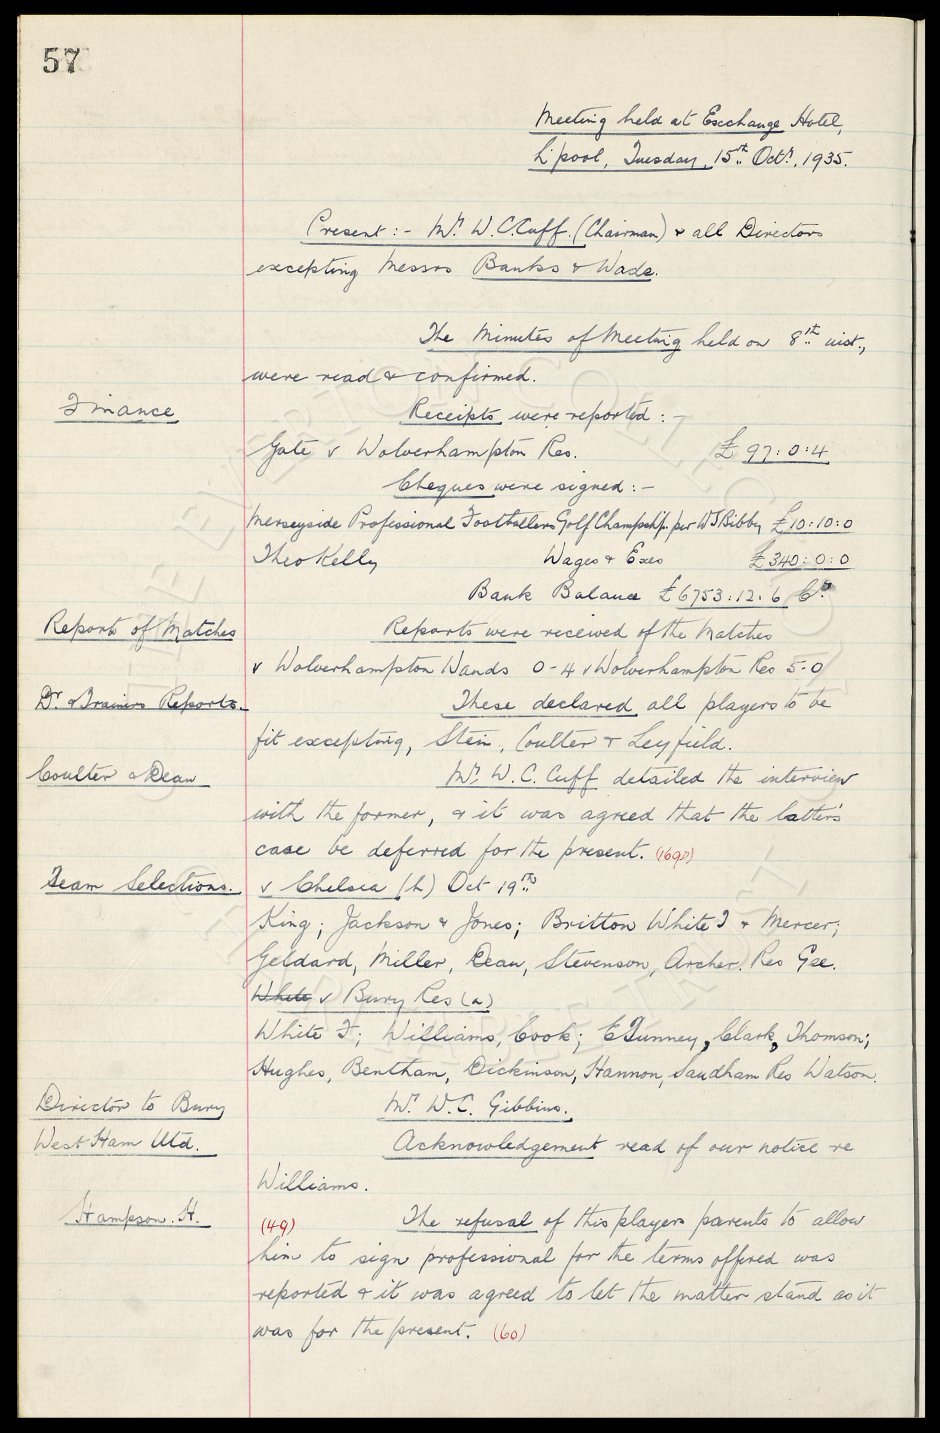 57
Meeting held at Exchange Hotel,
L'pool, Tuesday, 15th Octr, 1935.
Present :- Mr. W.C.Cuff. (Chairman) & all Directors
excepting Messrs Banks & Wade.
The Minutes of Meeting held on 8th inst.,
were read & confirmed.
Finance
Receipts were reported :-
Gate v Wolverhampton Res. £ 97:0:4
Cheques were signed :-
Merseyside Professional Footballers Golf Champshp. per WJBibby £10:10:0
Theo Kelly Wages & Exes £340:0:0
Bank Balance £6753:12:6 Cr
Reports of Matches Reports were received of the Matches
v Wolverhampton Wands 0-4 v Wolverhampton Res 5-0
Dr. & Trainers Reports. These declared all players to be
fit excepting, Stein, Coulter & Leyfield.
Coulter & Dean Mr. W. C. Cuff detailed the interview
with the former, & it was agreed that the latter's
case be deferred for the present.
Team Selections. v Chelsea (h) Oct 19th
King; Jackson & Jones; Britton White T & Mercer;
Geldard, Miller, Dean, Stevenson, Archer. Res Gee.
White v Bury Res (a)
White F; Williams, Cook; E Tunney, Clark, Thomson;
Hughes, Bentham, Dickinson, Hannon, Sandham Res Watson.
Director to Bury Mr. W.C. Gibbins.
West Ham Utd. Acknowledgement read of our notice re
Williams.
Hampson. H. (49) The refusal of this players parents to allow
him to sign professional for the terms offered was
reported & it was agreed to let the matter stand as it
was for the present. (60)
THE EVERTON COLLECTION
CHARITABLE TRUST